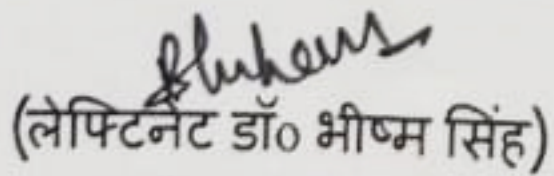 (लेफ्टिनेंट डॉ० भीष्म सिंह)